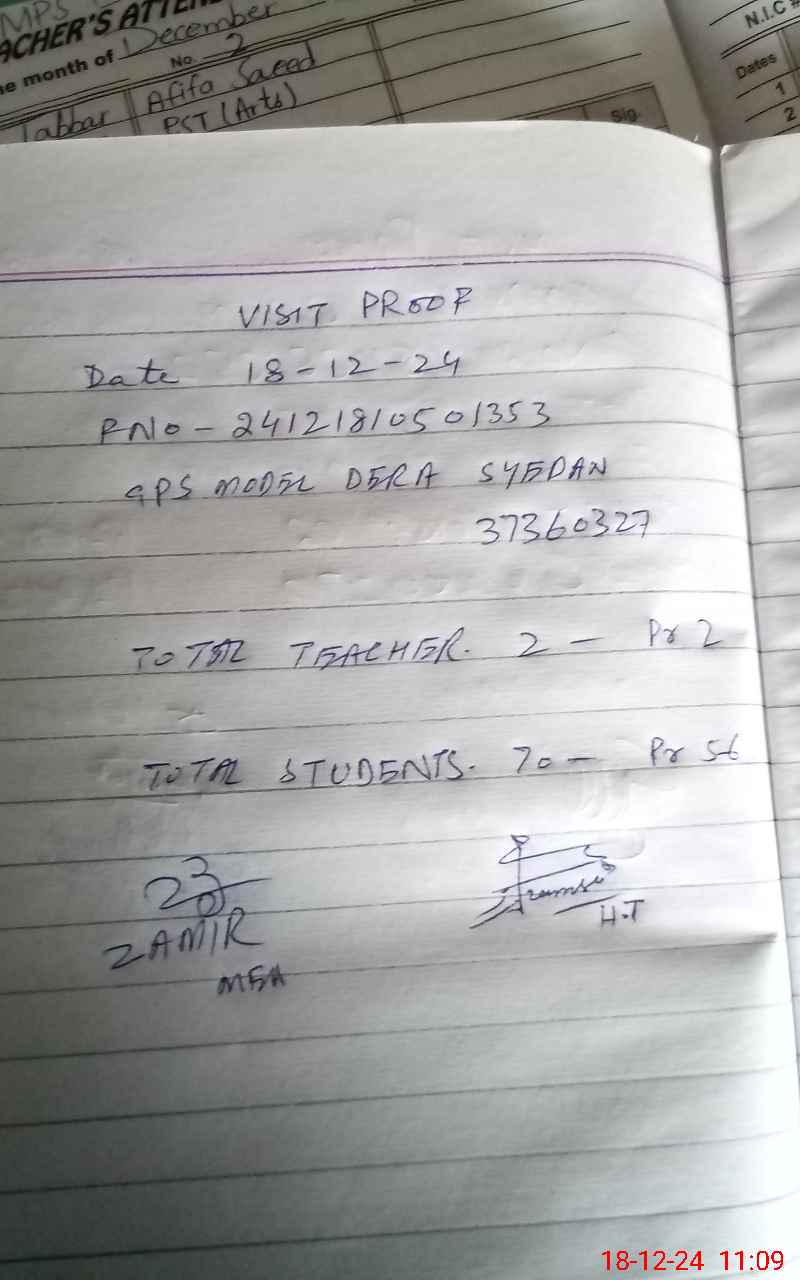 MPS
ACHER'S ATTEN
he month of December
No. 2
Jabbar Afifa Saeed
PST (Arts)
Sig.
N.I.C #
Dates
1
2
VISIT PROOF
Date 18-12-24
RNO - 24121810501353
GPS MODEL DERA SYEDAN
37360327
TOTAL TEACHER. 2 - Pr 2
TOTAL STUDENTS. 70 - Pr 56
ZAMIR
MEA
H.T
18-12-24 11:09